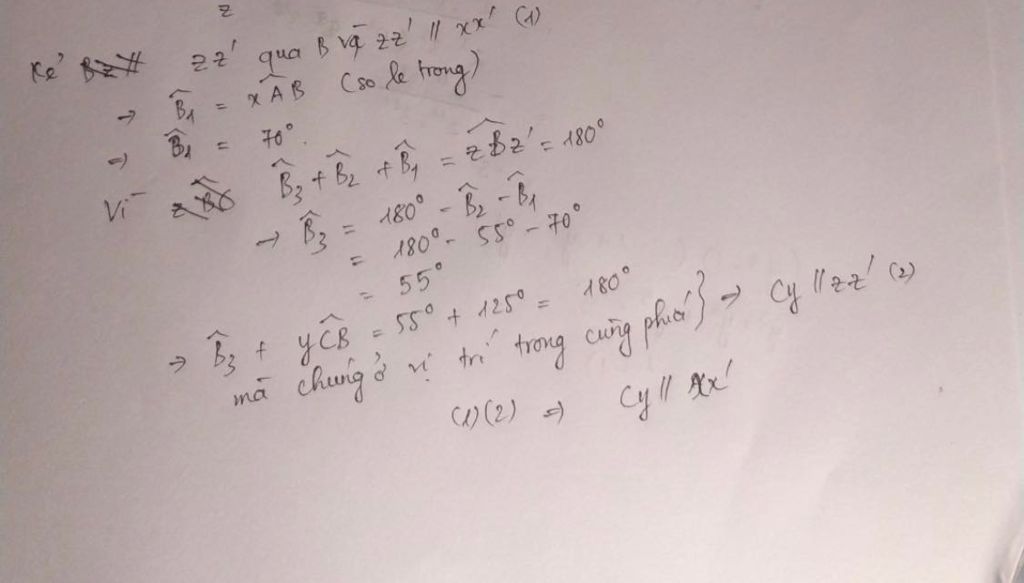 z
Kẻ zz' qua B và zz' // xx' (1)
→ B̂₁ = xÂB (so le trong)
⇒ B̂₁ = 70°.
Vì B̂₃ + B̂₂ + B̂₁ = zB̂z' = 180°
→ B̂₃ = 180° - B̂₂ - B̂₁
= 180° - 55° - 70°
= 55°
→ B̂₃ + yĈB = 55° + 125° = 180°
mà chúng ở vị trí trong cùng phía } → Cy // zz' (2)
(1)(2) ⇒ Cy // xx'